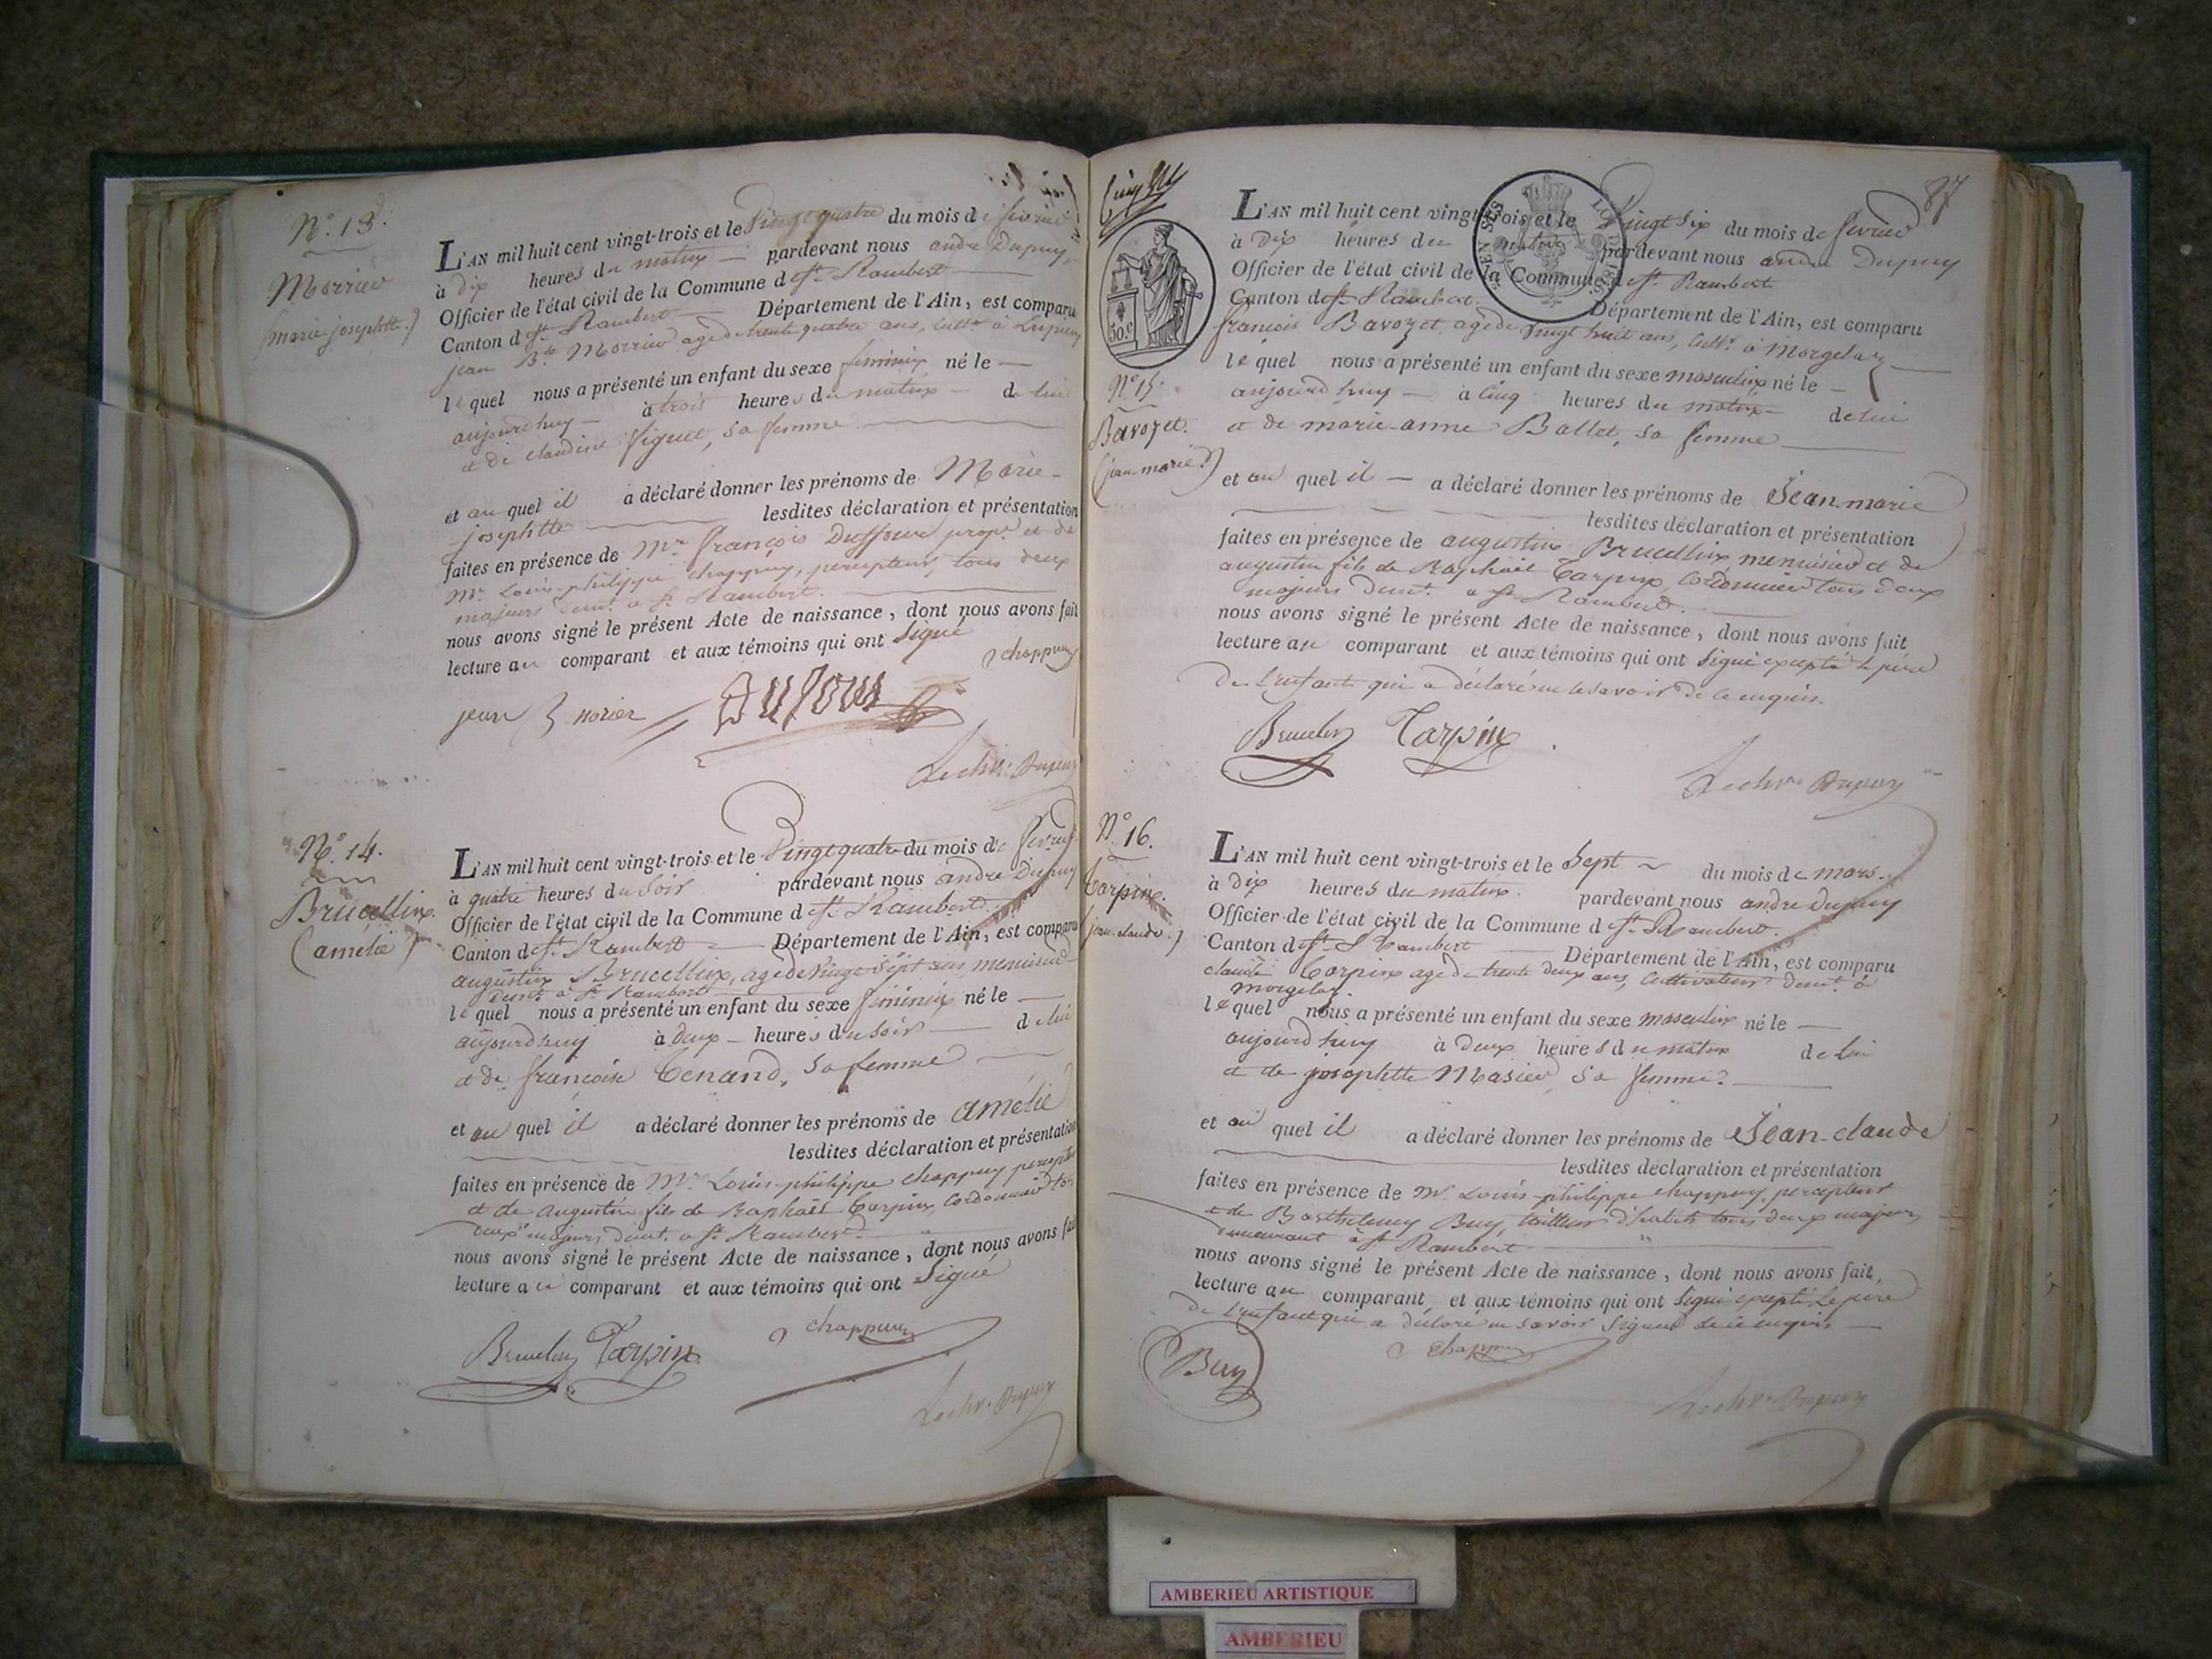 N.º 13.
Morrier
(marie josephtte.)
L'AN mil huit cent vingt-trois et le Vingt quatre du mois de fevrier
à dix heures du matin — pardevant nous andré Dupuy,
Officier de l'état civil de la Commune de St. Rambert —
Canton de St. Rambert — Département de l'Ain, est comparu
jean Bte. Morrier agé de trente quatre ans, cultr. à
le quel nous a présenté un enfant du sexe feminin né le —
aujourdhuy — à trois heures du matin — de lui
et de claudine Figuet, sa femme —
et au quel il a déclaré donner les prénoms de Marie-
josephtte — lesdites déclaration et présentation
faites en présence de Mr. françois Duffour propre. et de
Mr. Louis-philippe chappuy, percepteur, tous deux
majeurs demt. a St. Rambert. —
nous avons signé le présent Acte de naissance, dont nous avons fait
lecture au comparant et aux témoins qui ont Signé
chappuy
jean B morier Dufour
Le chvr. Dupuy
N.º 14.
Brucellin.
(amélie)
L'AN mil huit cent vingt-trois et le Vingt quatre du mois de fevrier
à quatre heures du Soir pardevant nous andré Dupuy
Officier de l'état civil de la Commune de St. Rambert.
Canton de St. Rambert — Département de l'Ain, est comparu
augustin Brucellin, agé de vingt Sept ans, menuisier
demt. à St. Rambert
le quel nous a présenté un enfant du sexe feminin né le —
aujourdhuy à deux — heures du Soir — de lui
et de françoise Tenand, sa femme —
et au quel il a déclaré donner les prénoms de amélie
lesdites déclaration et présentation
faites en présence de Mr. Louis-philippe chappuy percepteur
et de augustin fils de Raphaël Tarpin, Cordonnier tous
deux majeurs demt. a St. Rambert. —
nous avons signé le présent Acte de naissance, dont nous avons fait
lecture au comparant et aux témoins qui ont Signé
Brucelin Tarpin chappuy
Le chvr. Dupuy
87
50.c
N.º 15.
Bavozet.
(jean-marie.)
L'AN mil huit cent vingt-trois et le Vingt Six du mois de fevrier
à Dix heures du matin pardevant nous andré Dupuy
Officier de l'état civil de la Commune de St. Rambert
Canton de St. Rambert. Département de l'Ain, est comparu
francois Bavozet, agé de vingt huit ans, cultr. à Morgelaz —
le quel nous a présenté un enfant du sexe masculin né le —
aujourdhuy — à Cinq heures du matin — de lui
et de marie-anne Ballet, sa femme —
et au quel il — a déclaré donner les prénoms de Jean-marie
lesdites déclaration et présentation
faites en présence de augustin Brucellin, menuisier et de
augustin fils de Raphaël Tarpin, Cordonnier tous deux
majeurs demt. a St. Rambert. —
nous avons signé le présent Acte de naissance, dont nous avons fait
lecture au comparant et aux témoins qui ont Signé excepté le père
de l'enfant qui a déclaré ne le savoir de ce enquis.
Brucelin Tarpin
Le chvr. Dupuy
N.º 16.
Tarpin.
(jean-claude.)
L'AN mil huit cent vingt-trois et le Sept du mois de mars.
à dix heures du matin. pardevant nous andré Dupuy
Officier de l'état civil de la Commune de St. Rambert.
Canton de St. Rambert — Département de l'Ain, est comparu
claude Tarpin agé de trente deux ans, cultivateur demt. à
Morgelaz.
le quel nous a présenté un enfant du sexe masculin né le —
aujourdhuy à deux heures du matin de lui
et de josephtte Masier, sa femme. —
et au quel il a déclaré donner les prénoms de Jean-claude
lesdites déclaration et présentation
faites en présence de Mr. Louis-philippe chappuy, percepteur
et de Barthelemy Buy, tailleur d'habits tous deux majeurs
demeurant à St. Rambert —
nous avons signé le présent Acte de naissance, dont nous avons fait,
lecture au comparant et aux témoins qui ont Signé excepté le père
de l'enfant qui a déclaré ne savoir signer de ce enquis —
Buy chappuy
Le chvr. Dupuy
AMBERIEU ARTISTIQUE
AMBERIEU